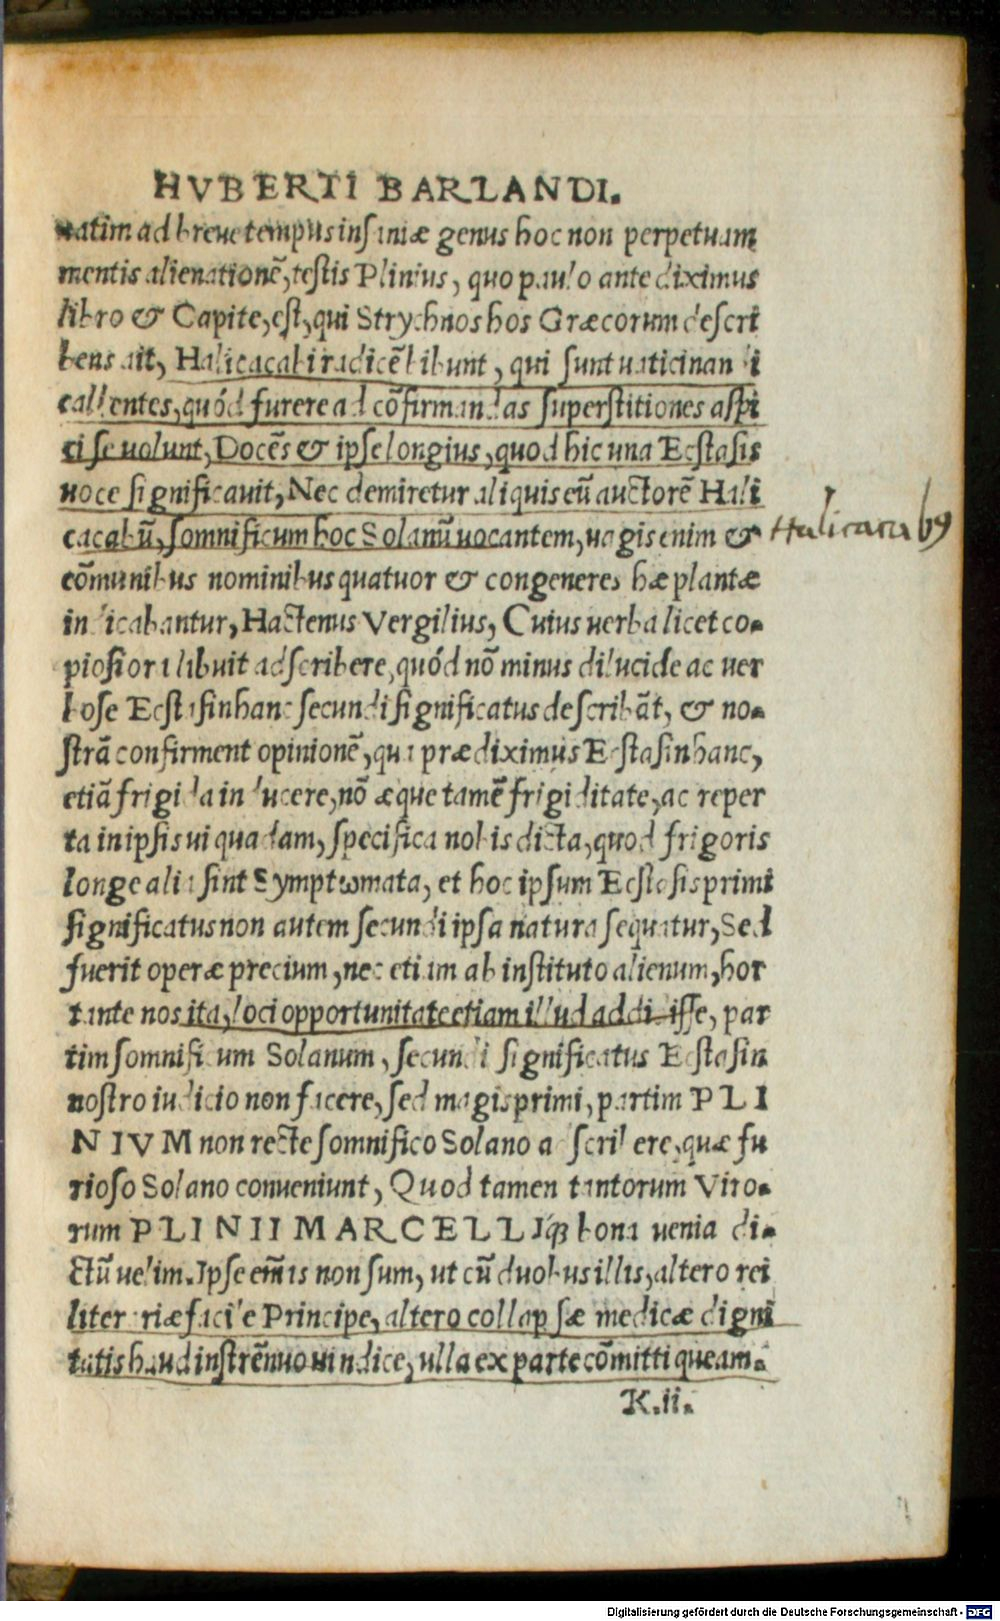 HVBERTI BARLANDI.
natim ad breue tempus insaniæ genus hoc non perpetuam
mentis alienationẽ, testis Plinius, quo paulo ante diximus
libro & Capite, est, qui Strychnos hos Græcorum descri
bens ait, Halicacabi radicẽ bibunt, qui sunt uaticinandi
callentes, quód furere ad cõfirmandas superstitiones aspi
ci se uolunt, Docẽs & ipse longius, quod hic una Ecstasis
uoce significauit, Nec demiretur aliquis eũ auctorẽ Hali
cacabũ, somnificum hoc Solanũ uocantem, uagis enim &
Halicacabꝰ
cõmunibus nominibus quatuor & congeneres hæ plantæ
indicabantur, Hactenus Vergilius, Cuius uerba licet co-
piosiora libuit adscribere, quód nõ minus dilucide ac uer
bose Ecstasin hanc secundi significatus describãt, & no-
strã confirment opinionẽ, qua prædiximus Ecstasin hanc,
etiã frigida inducere, nõ æque tamẽ frigiditate, ac reper
ta in ipsis ui quadam, specifica nobis dicta, quod frigoris
longe alia sint Symptωmata, et hoc ipsum Ecstasis primi
significatus non autem secundi ipsa natura sequatur, Sed
fuerit operæ precium, nec etiam ab instituto alienum, hor
tante nos ita, loci opportunitate etiam illud addidisse, par
tim somnificum Solanum, secundi significatus Ecstasin
nostro iudicio non facere, sed magis primi, partim PLI
NIVM non recte somnifico Solano adscribere, quæ fu
rioso Solano conueniunt, Quod tamen tantorum Viro-
rum PLINII MARCELLIq́ꝫ bona uenia di-
ctũ uelim. Ipse em̃ is non sum, ut cũ duobus illis, altero rei
literariæ facile Principe, altero collapsæ medicæ digni
tatis haud instrẽnuo uindice, ulla ex parte cõmitti queam.
K.ii.
Digitalisierung gefördert durch die Deutsche Forschungsgemeinschaft - DFG